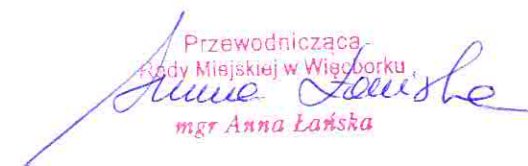 Przewodnicząca
Rady Miejskiej w Więcborku
Anna Łańska
mgr Anna Łańska